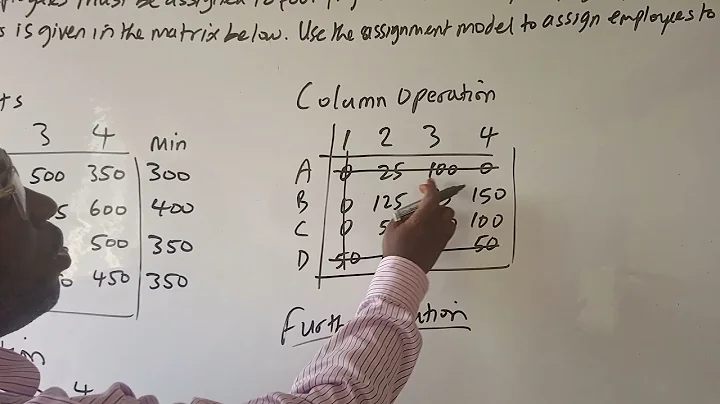 must be assigned to
s is given in the matrix below. Use the assignment model to assign employees to
ts
3 4 Min
500 350 300
5 600 400
500 350
0 450 350
4
Column Operation
1 2 3 4
A 0 25 100 0
B 0 125 150
C 0 5 100
D 50 50
Furth ution